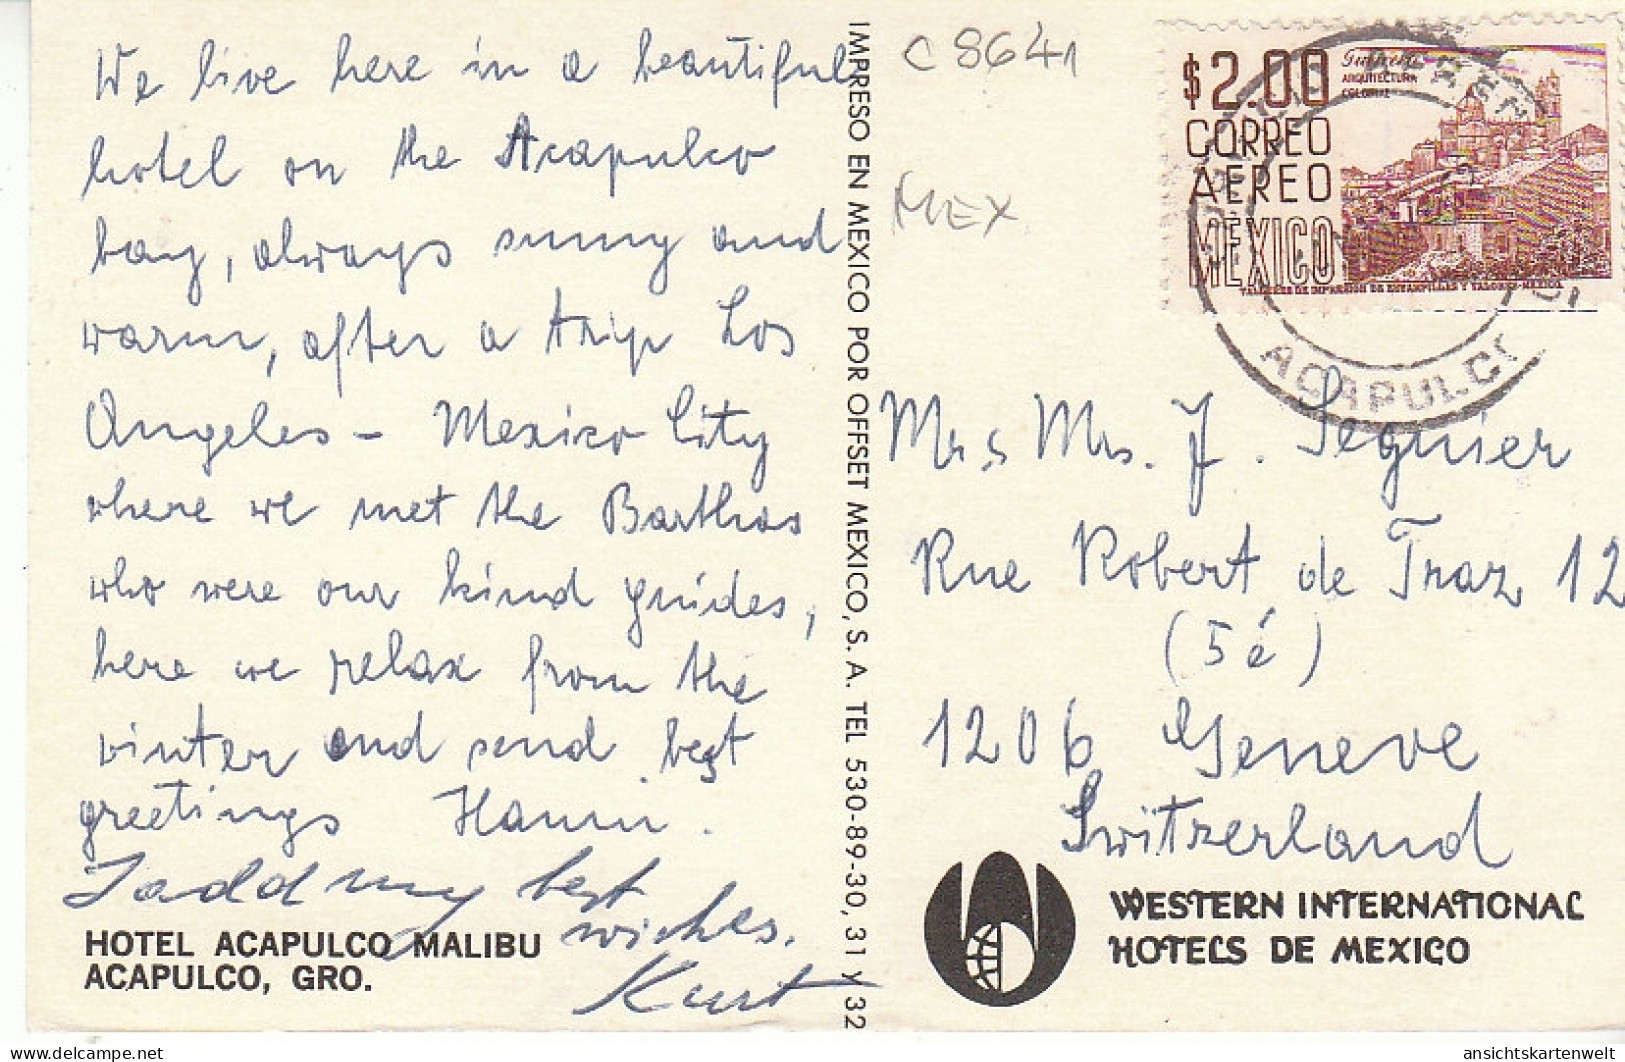 We live here in a beautiful
hotel on the Acapulco
bay, always sunny and
warm, after a trip Los
Angeles - Mexico City
where we met the Barthas
who were our kind guides,
here we relax from the
winter and send best
greetings Hanni.
I add my best
wishes.
Kurt
HOTEL ACAPULCO MALIBU
ACAPULCO, GRO.
IMPRESO EN MEXICO POR OFFSET MEXICO, S. A. TEL 530-89-30, 31 y 32
C 8641
MEX
$2.00
CORREO
AEREO
MEXICO
Guerrero
ARQUITECTURA
COLONIAL
TALLERES DE IMPRESION DE ESTAMPILLAS Y VALORES-MEXICO
ACAPULCO
Mr & Mrs. J. Seguier
Rue Robert de Traz 12
(5é)
1206 Geneve
Switzerland
WESTERN INTERNATIONAL
HOTELS DE MEXICO
delcampe.net
ansichtskartenwelt